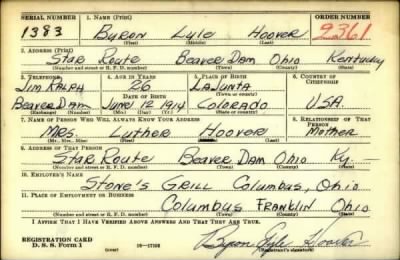 SERIAL NUMBER 1. NAME (Print) ORDER NUMBER
1383 Byron Lyle Hoover 2361
(First) (Middle) (Last)
2. ADDRESS (Print)
Star Route Beaver Dam Ohio Kentucky
(Number and street or R. F. D. number) (Town) (County) (State)
3. TELEPHONE 4. AGE IN YEARS 5. PLACE OF BIRTH 6. COUNTRY OF CITIZENSHIP
Jim Ralph 26 LaJunta
(Town or county)
DATE OF BIRTH
Beaver Dam June 12 1914 Colorado USA
(Exchange) (Number) (Mo.) (Day) (Yr.) (State or country)
7. NAME OF PERSON WHO WILL ALWAYS KNOW YOUR ADDRESS 8. RELATIONSHIP OF THAT PERSON
Mrs. Luther Hoover Mother
(Mr., Mrs., Miss) (First) (Middle) (Last)
9. ADDRESS OF THAT PERSON
Star Route Beaver Dam Ohio Ky.
(Number and street or R. F. D. number) (Town) (County) (State)
10. EMPLOYER'S NAME
Stone's Grill Columbus, Ohio
11. PLACE OF EMPLOYMENT OR BUSINESS
Columbus Franklin Ohio
(Number and street or R. F. D. number) (Town) (County) (State)
I AFFIRM THAT I HAVE VERIFIED ABOVE ANSWERS AND THAT THEY ARE TRUE.
REGISTRATION CARD
D. S. S. Form 1 (over) 16-17105 Byron Lyle Hoover
(Registrant's signature)